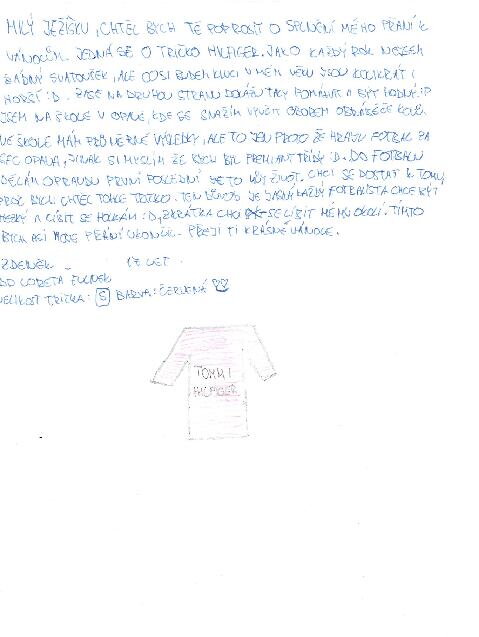 MILÝ JEŽÍŠKU, CHTĚL BYCH TĚ POPROSIT O SPLNĚNÍ MÉHO PŘÁNÍ K
VÁNOCŮM. JEDNÁ SE O TRIČKO HILFIGER. JAKO KAŽDÝ ROK NEJSEM
ŽÁDNÝ SVATOUŠEK, ALE COSI BUDEM KLUCI V MÉM VĚKU JSOU KOLIKRÁT I
HORŠÍ :D. ZASE NA DRUHOU STRANU DOKÁŽU TAKY POMÁHAT A BÝT HODNÝ :P
JSEM NA ŠKOLE V OPAVĚ, KDE SE SNAŽÍM VYUČIT OBOREM OBRÁBĚČE KOVŮ.
VE ŠKOLE MÁM PRŮMĚRNÉ VÝSLEDKY, ALE TO JEN PROTO ŽE HRAJU FOTBAL ZA
SFC OPAVA, JINAK SI MYSLÍM ŽE BYCH BYL PREMIANT TŘÍDY :D. DO FOTBALU
DĚLÁM OPRAVDU PRVNÍ POSLEDNÍ JE TO MŮJ ŽIVOT. CHCI SE DOSTAT K TOMU,
PROČ BYCH CHTĚL TOHLE TRIČKO. TEN DŮVOD JE JASNÝ KAŽDÝ FOTBALISTA CHCE BÝT
HEZKÝ A LÍBIT SE HOLKÁM :D, ZKRÁTKA CHCI SE LÍBIT MÉMU OKOLÍ. TÍMTO
BYCH ASI MOJE PŘÁNÍ UKONČIL. PŘEJI TI KRÁSNÉ VÁNOCE.
ZDENĚK 17 LET
DD LORETA FULNEK
VELIKOST TRIČKA: S BARVA: ČERVENÁ
TOMMI
HILFIGER